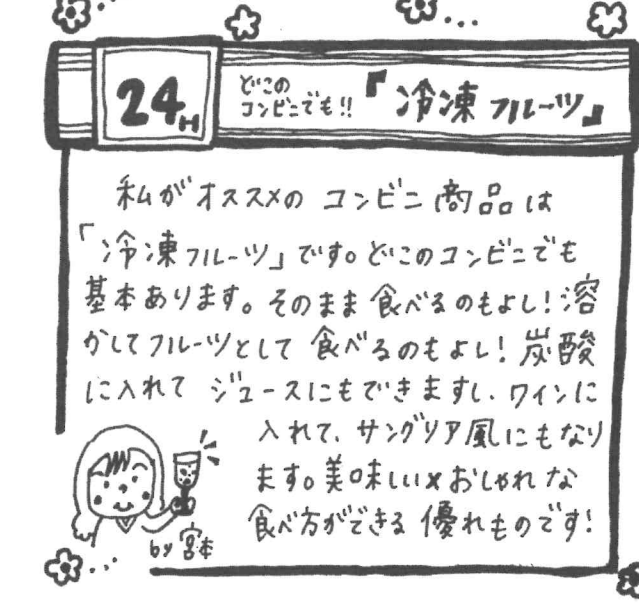 24H
どこの
コンビニでも!!
『冷凍フルーツ』
私がオススメの コンビニ商品は
「冷凍フルーツ」です。どこのコンビニでも
基本あります。そのまま食べるのもよし!溶
かしてフルーツとして食べるのもよし!炭酸
に入れて ジュースにもできますし、ワインに
入れて、サングリア風にもなり
ます。美味しい×おしゃれな
食べ方ができる優れものです!
by 宮本